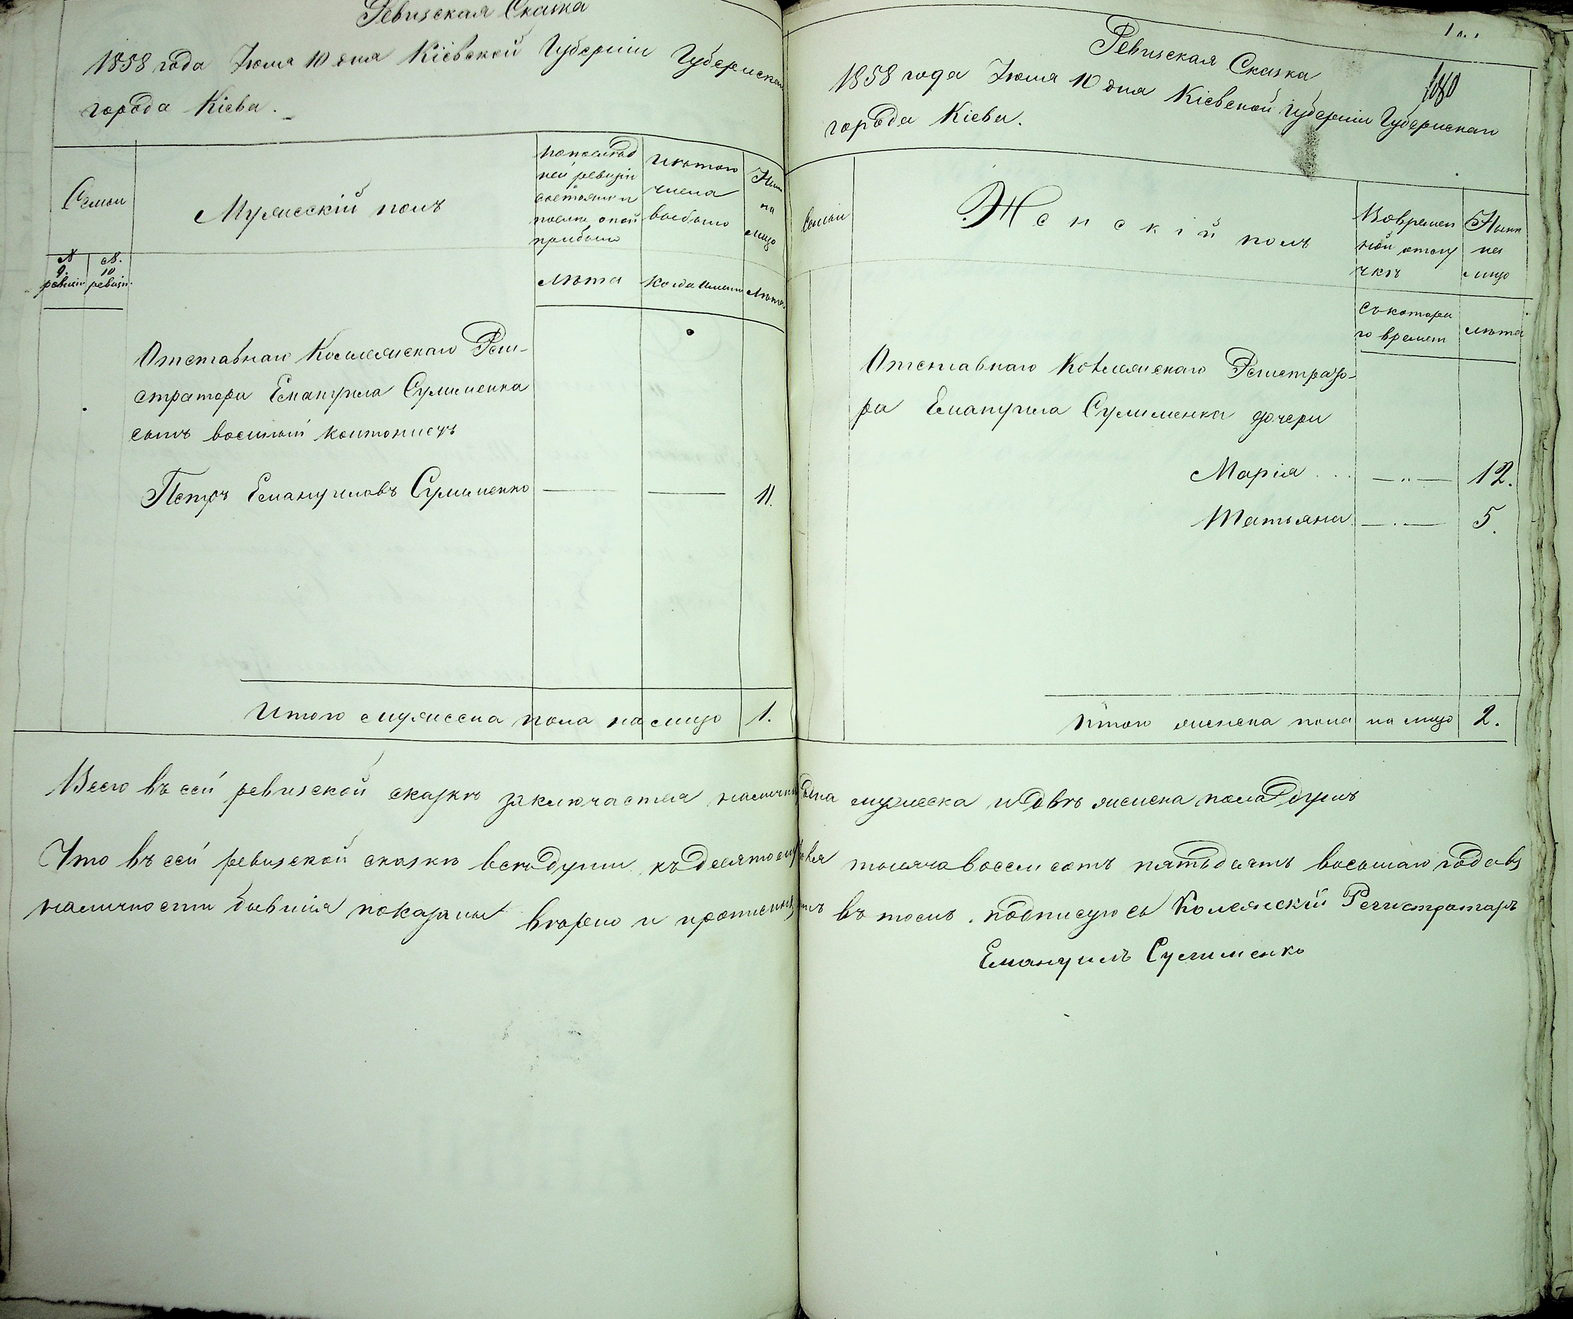 Ревизская Сказка
1858 года Июля 10 дня Кіевской Губерніи Губернскаго
города Кіева.
Семьи
Мужескій полъ
По послѣд
ней ревизіи
состояло и
послѣ оной
прибыло
Изътого
числа
выбыло
Нынѣ
на
лицо
№ 9. ревизіи
№. 10 ревизіи.
лѣта
когда именно
лѣта.
Отставнаго Коллежскаго Реги-
стратора Емануила Сулименка
сынъ военный кантонистъ
Петръ Емануиловъ Сулименко — — 11.
Итого мужеска пола на лицо 1.
1080
Ревизская Сказка
1858 года Июля 10 дня Кіевской Губерніи Губернскаго
города Кіева.
Семьи
Женскій полъ
Во времен
ной отлу
чкѣ
Нынѣ
на
лицо
съ котора
го времен
лѣта
Отставнаго Коллежскаго Регистрато-
ра Емануила Сулименка дочери
Марія . . . —„— 12.
Татьяна —„— 5.
Итого женска пола на лицо 2.
Всего въ сей ревизской сказкѣ заключается налично одна мужеска и двѣ женска пола душъ
Что въ сей ревизской сказкѣ всѣ души къ десятому тысяча восемсотъ пятьдесятъ восьмаго года въ
наличности бывшія показаны вѣрно и въ томъ подписуюсь Колежскій Регистраторъ
Емануилъ Сулименко